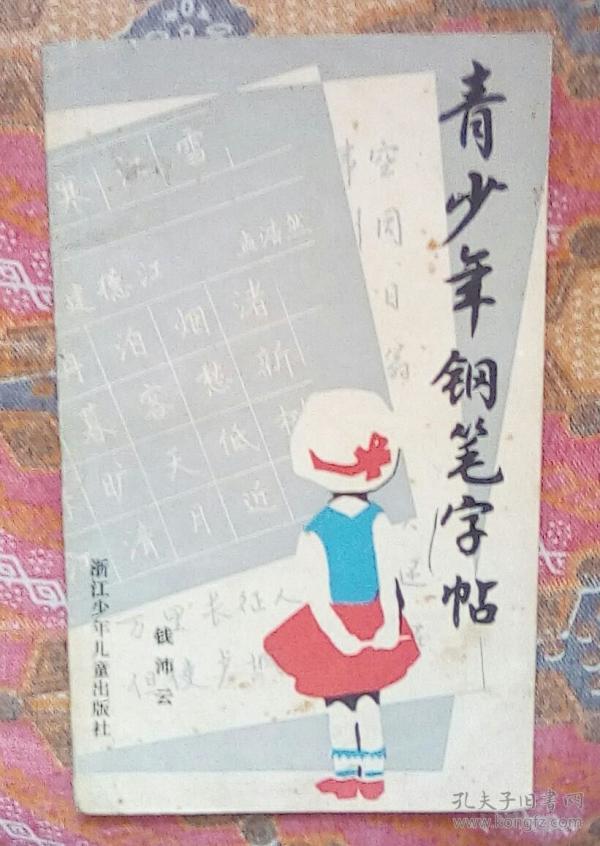 青少年钢笔字帖
钱沛云
浙江少年儿童出版社
寒江雪
建德江
孟浩然
泊烟渚
暮客愁新
旷天低树
清月近
空
万里长征人
但使
还
孔夫子旧书网
www.kongfz.com